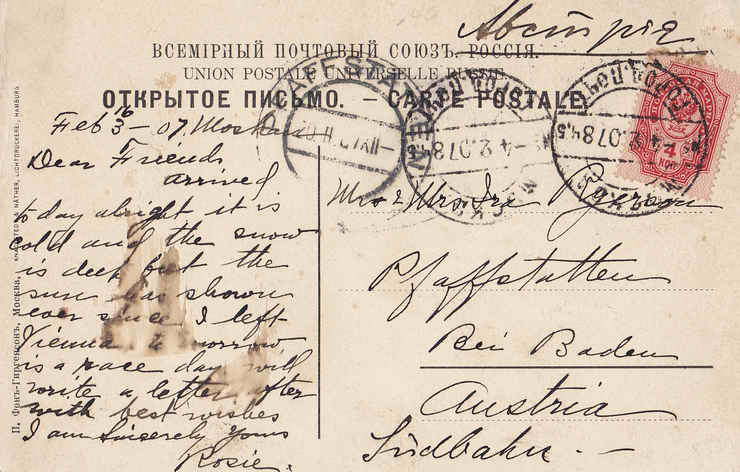 Австрія
ВСЕМІРНЫЙ ПОЧТОВЫЙ СОЮЗЪ. РОССІЯ.
UNION POSTALE UNIVERSELLE RUSSIE.
ОТКРЫТОЕ ПИСЬМО. – CARTE POSTALE.
Feb 3 – 07. Moskau
Dear Friends
arrived
to day alright it is
cold and the snow
is deep but the
sun has shown
ever since I left
Vienna to morrow
is a race day will
write a letter after
with best wishes
I am Sincerely Yours
Rosie.
Mr & Mrs. Ira
Pfaffstatten
Bei Baden
Austria
Südbahn. –
П. Фонъ-Гиргенсонъ, Москва,
LICHTDRUCKEREI, HAMBURG
-4.2.07.8